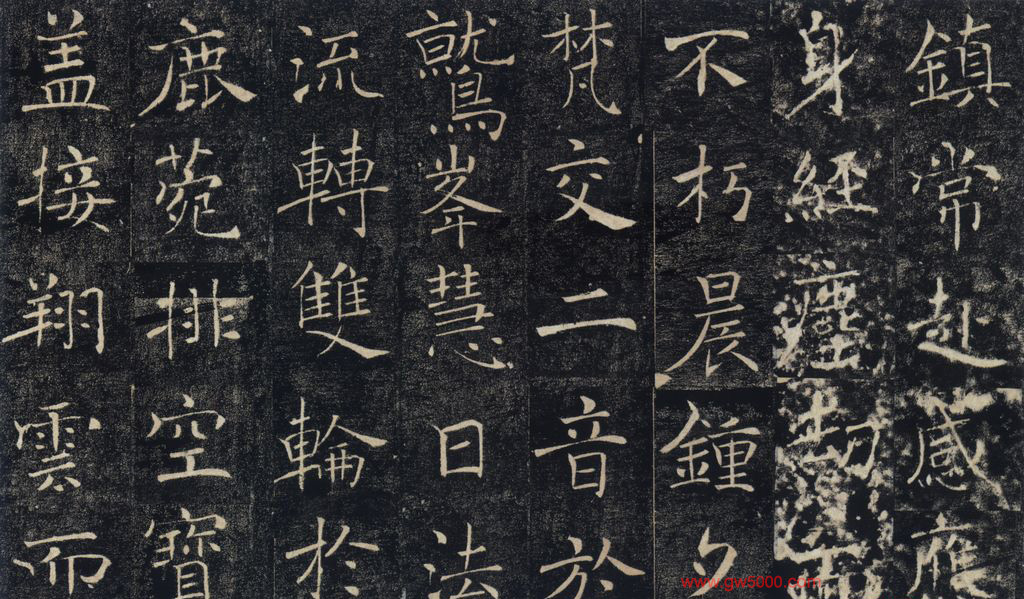 鎮常赴感應
身經塵劫而
不朽晨鍾夕
梵交二音於
鷲峯慧日法
流轉雙輪於
鹿菀排空寶
盖接翔雲而
www.gw5000.com